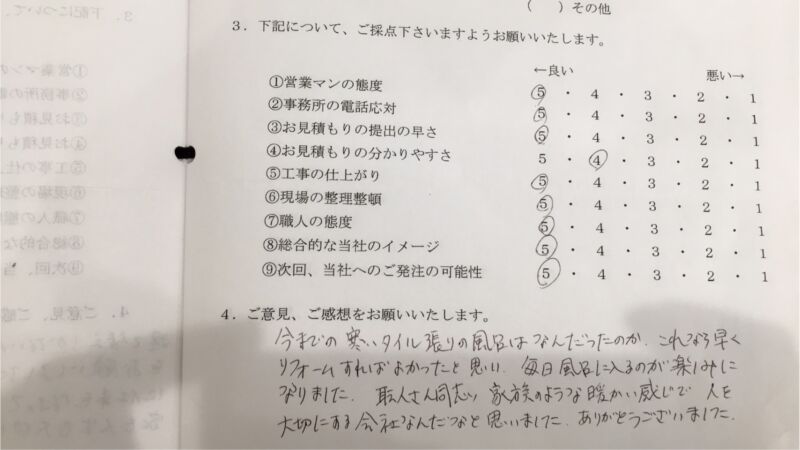 ( ) その他
3．下記について、ご採点下さいますようお願いいたします。
←良い 悪い→
①営業マンの態度 5 ・ 4 ・ 3 ・ 2 ・ 1
②事務所の電話応対 5 ・ 4 ・ 3 ・ 2 ・ 1
③お見積もりの提出の早さ 5 ・ 4 ・ 3 ・ 2 ・ 1
④お見積もりの分かりやすさ 5 ・ 4 ・ 3 ・ 2 ・ 1
⑤工事の仕上がり 5 ・ 4 ・ 3 ・ 2 ・ 1
⑥現場の整理整頓 5 ・ 4 ・ 3 ・ 2 ・ 1
⑦職人の態度 5 ・ 4 ・ 3 ・ 2 ・ 1
⑧総合的な当社のイメージ 5 ・ 4 ・ 3 ・ 2 ・ 1
⑨次回、当社へのご発注の可能性 5 ・ 4 ・ 3 ・ 2 ・ 1
4．ご意見、ご感想をお願いいたします。
今までの寒いタイル張りの風呂はなんだったのか、これなら早く
リフォームすればよかったと思い、毎日風呂に入るのが楽しみに
なりました。職人さん同志、家族のような暖かい感じで 人を
大切にする会社なんだなと思いました。ありがとうございました。